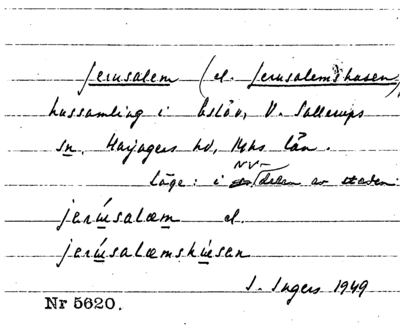 Jerusalem (el. Jerusalemshusen),
hussamling i Eslöv, V. Sallerups
sn. Harjagers hd, Mhs län.
NV-
Läge: i delen av staden.
jerúsalæm el.
jerúsalæmshúsen
I. Ingers 1949
Nr 5620.